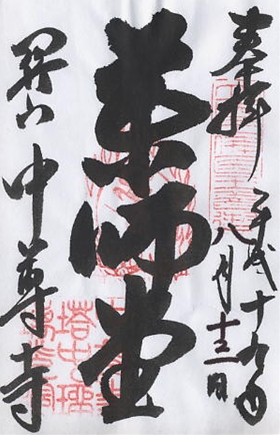 奉拝
平成十九年
八月十三日
薬師堂
関山 中尊寺